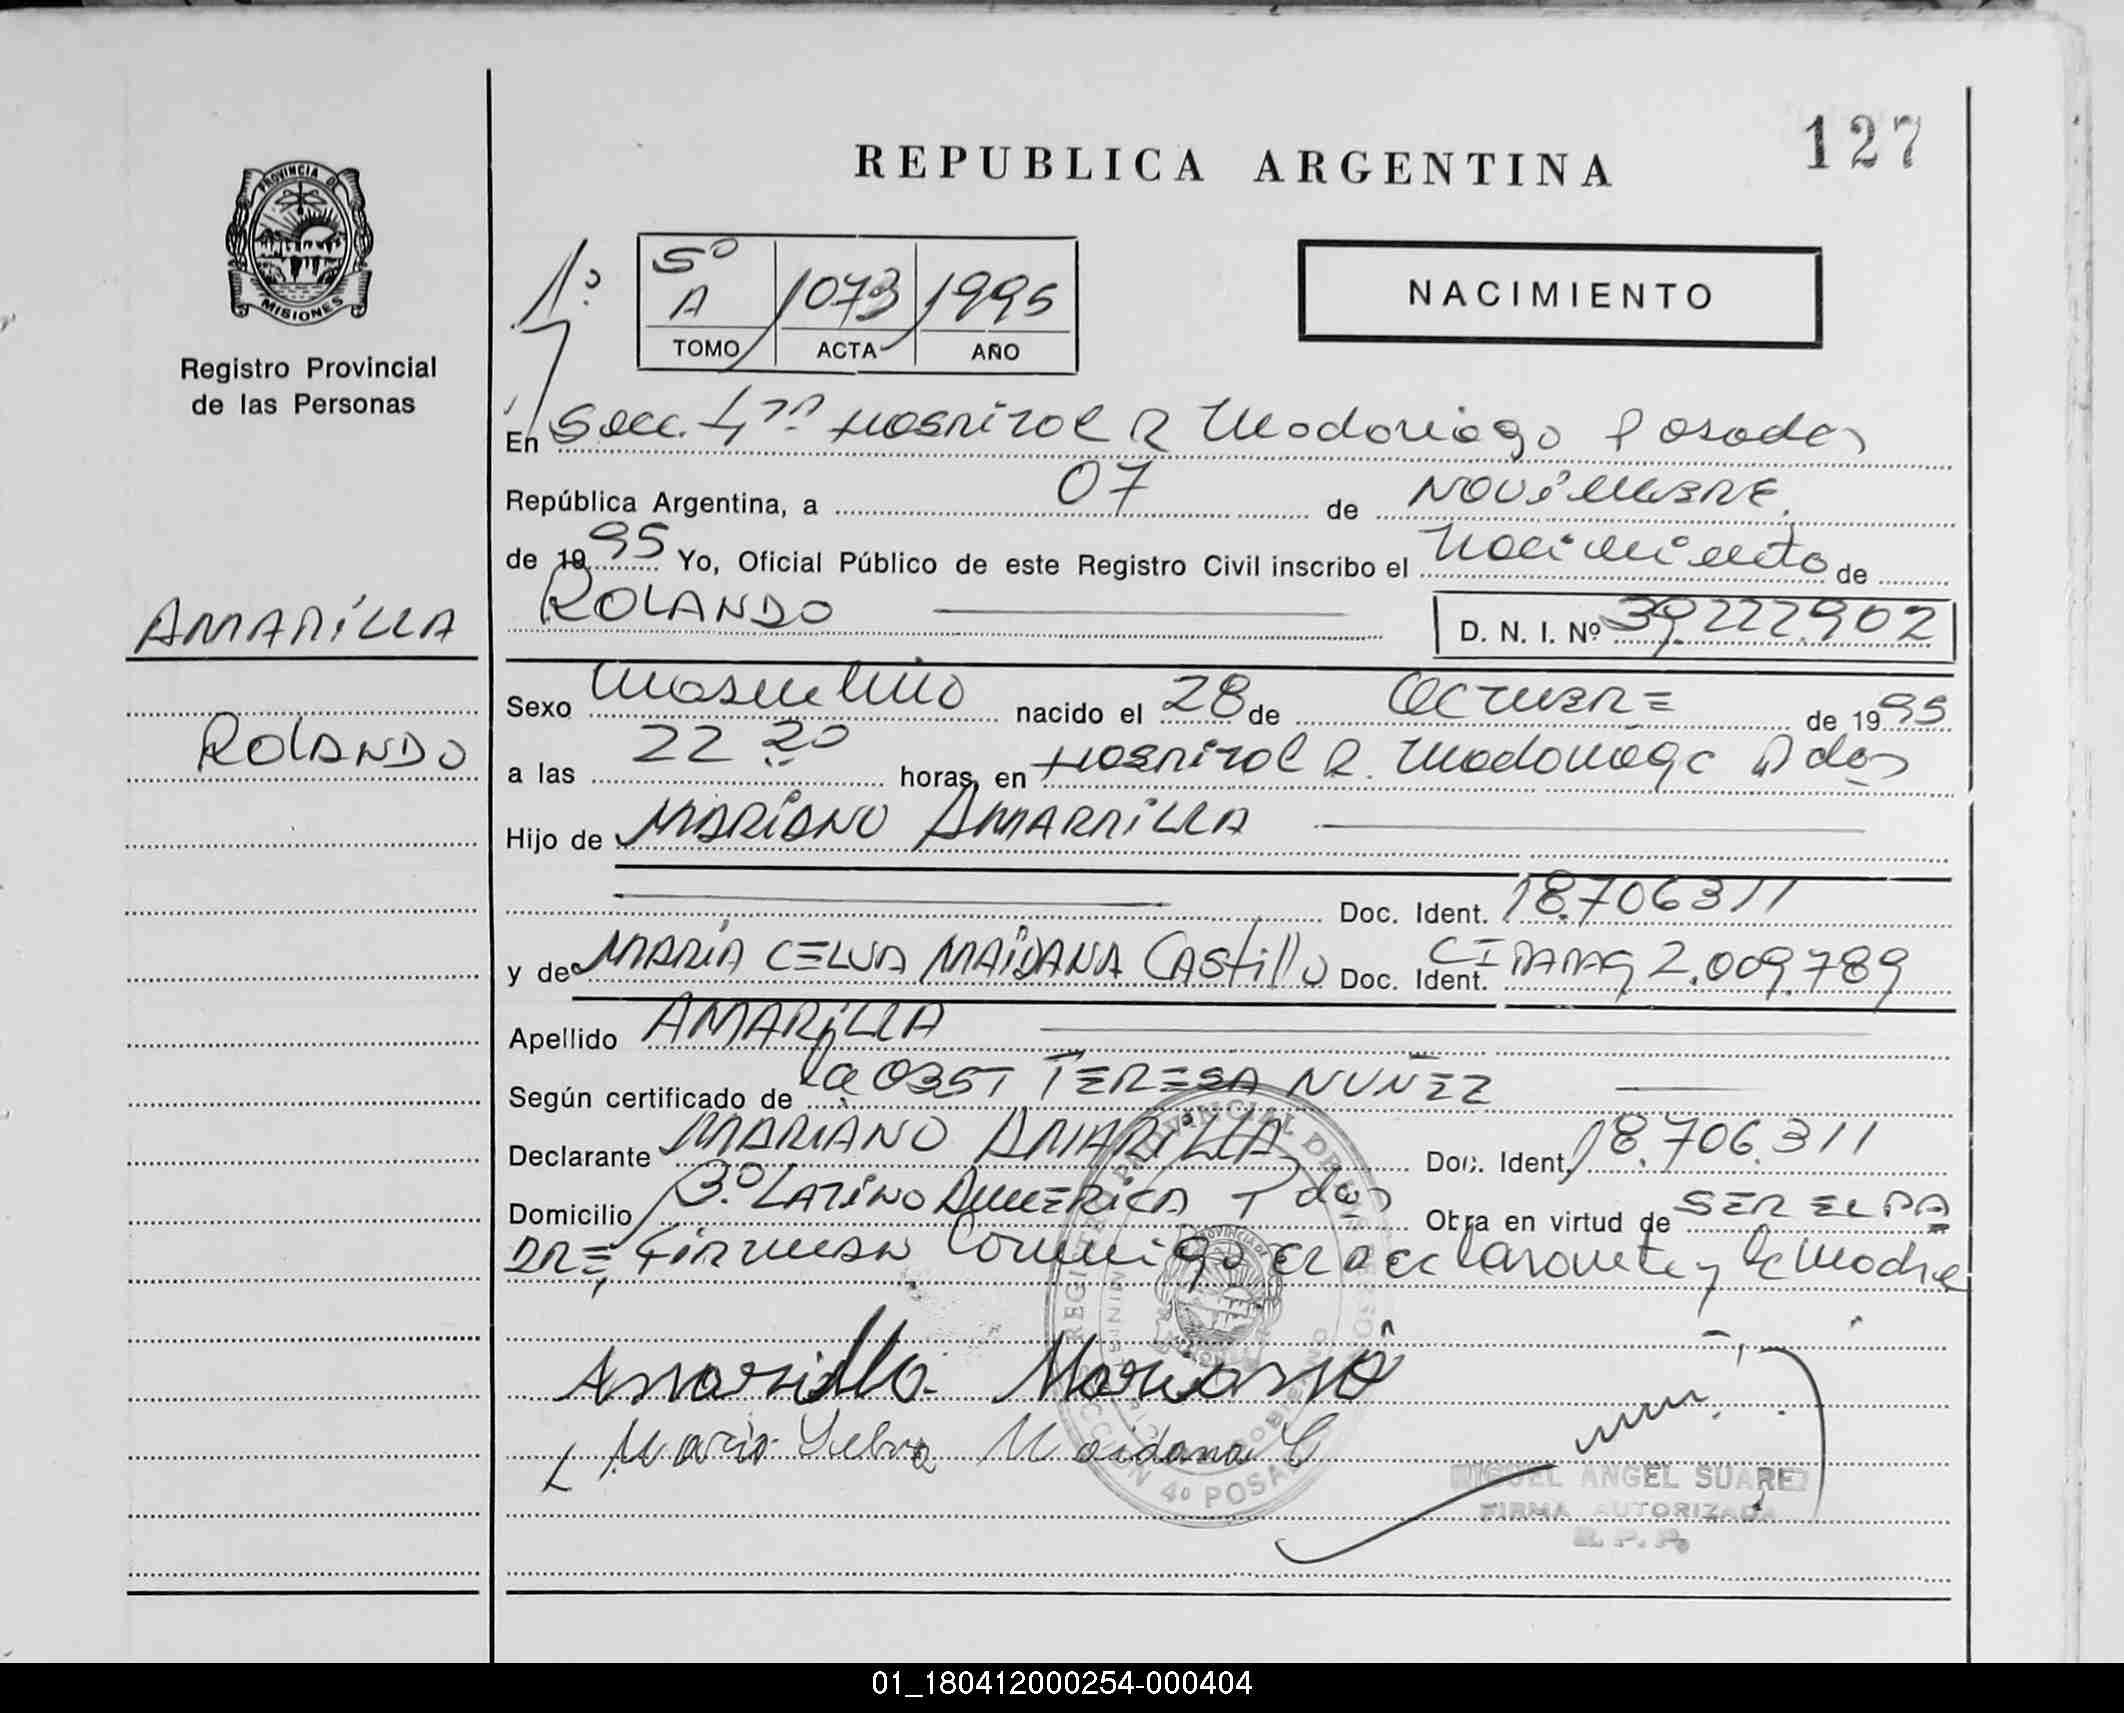 127
REPUBLICA ARGENTINA
PROVINCIA DE
MISIONES
Registro Provincial
de las Personas
5º
A 1073 1995
TOMO ACTA AÑO
NACIMIENTO
En Secc. 4ª Hospital R Madariaga Posadas
República Argentina, a 07 de NOVIEMBRE
de 1995 Yo, Oficial Público de este Registro Civil inscribo el Nacimiento de
ROLANDO D. N. I. Nº 39.222.902
AMARILLA
Sexo Masculino nacido el 28 de OCTUBRE de 1995
ROLANDO
a las 22 20 horas, en Hospital R. Madariaga Pdas
Hijo de MARIANO AMARILLA
Doc. Ident. 18.706311
y de MARIA CELVA MAIDANA CAStillo Doc. Ident. CI 2.009.789
Apellido AMARILLA
Según certificado de la OBST TERESA NUÑEZ
Declarante MARIANO AMARILLA Doc. Ident. 18.706.311
Domicilio Bº LATINO AMERICA Pdas Obra en virtud de SER EL PA
DRE, Firman Conmigo el declarante y la Madre
Amarilla Mariano
Maria Selva Maidana C
REGISTRO PROVINCIAL DE LAS PERSONAS
SECCION 4º POSADAS
MIGUEL ANGEL SUAREZ
FIRMA AUTORIZADA
R. P. P.
01_180412000254-000404